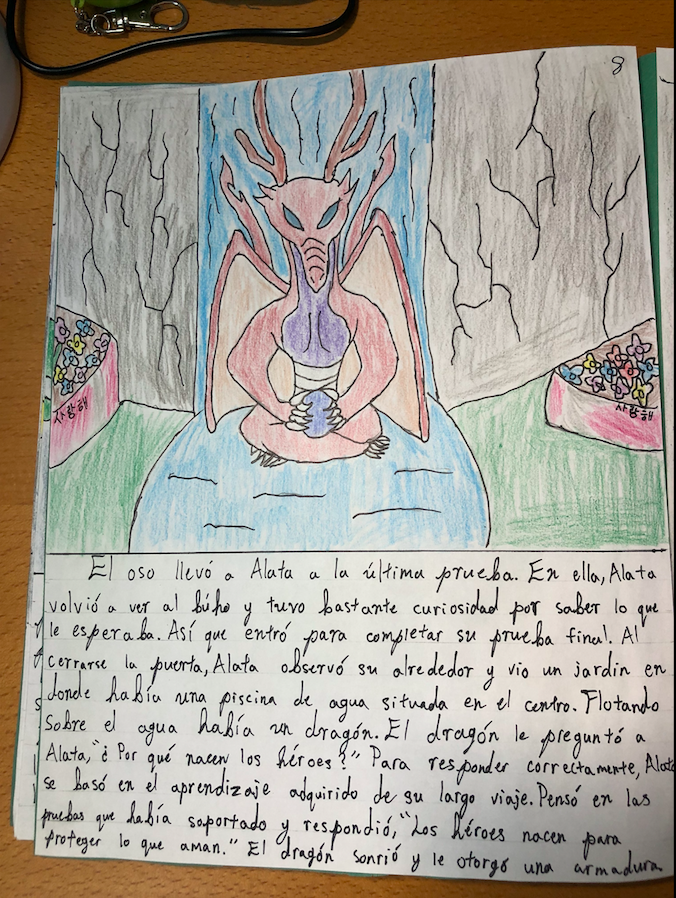 8
사랑해
사랑해
El oso llevó a Alata a la última prueba. En ella, Alata
volvió a ver al búho y tuvo bastante curiosidad por saber lo que
le esperaba. Así que entró para completar su prueba final. Al
cerrarse la puerta, Alata observó su alrededor y vio un jardín en
donde había una piscina de agua situada en el centro. Flotando
sobre el agua había un dragón. El dragón le preguntó a
Alata, "¿Por qué nacen los héroes?" Para responder correctamente, Alata
se basó en el aprendizaje adquirido de su largo viaje. Pensó en las
pruebas que había soportado y respondió, "Los héroes nacen para
proteger lo que aman." El dragón sonrió y le otorgó una armadura